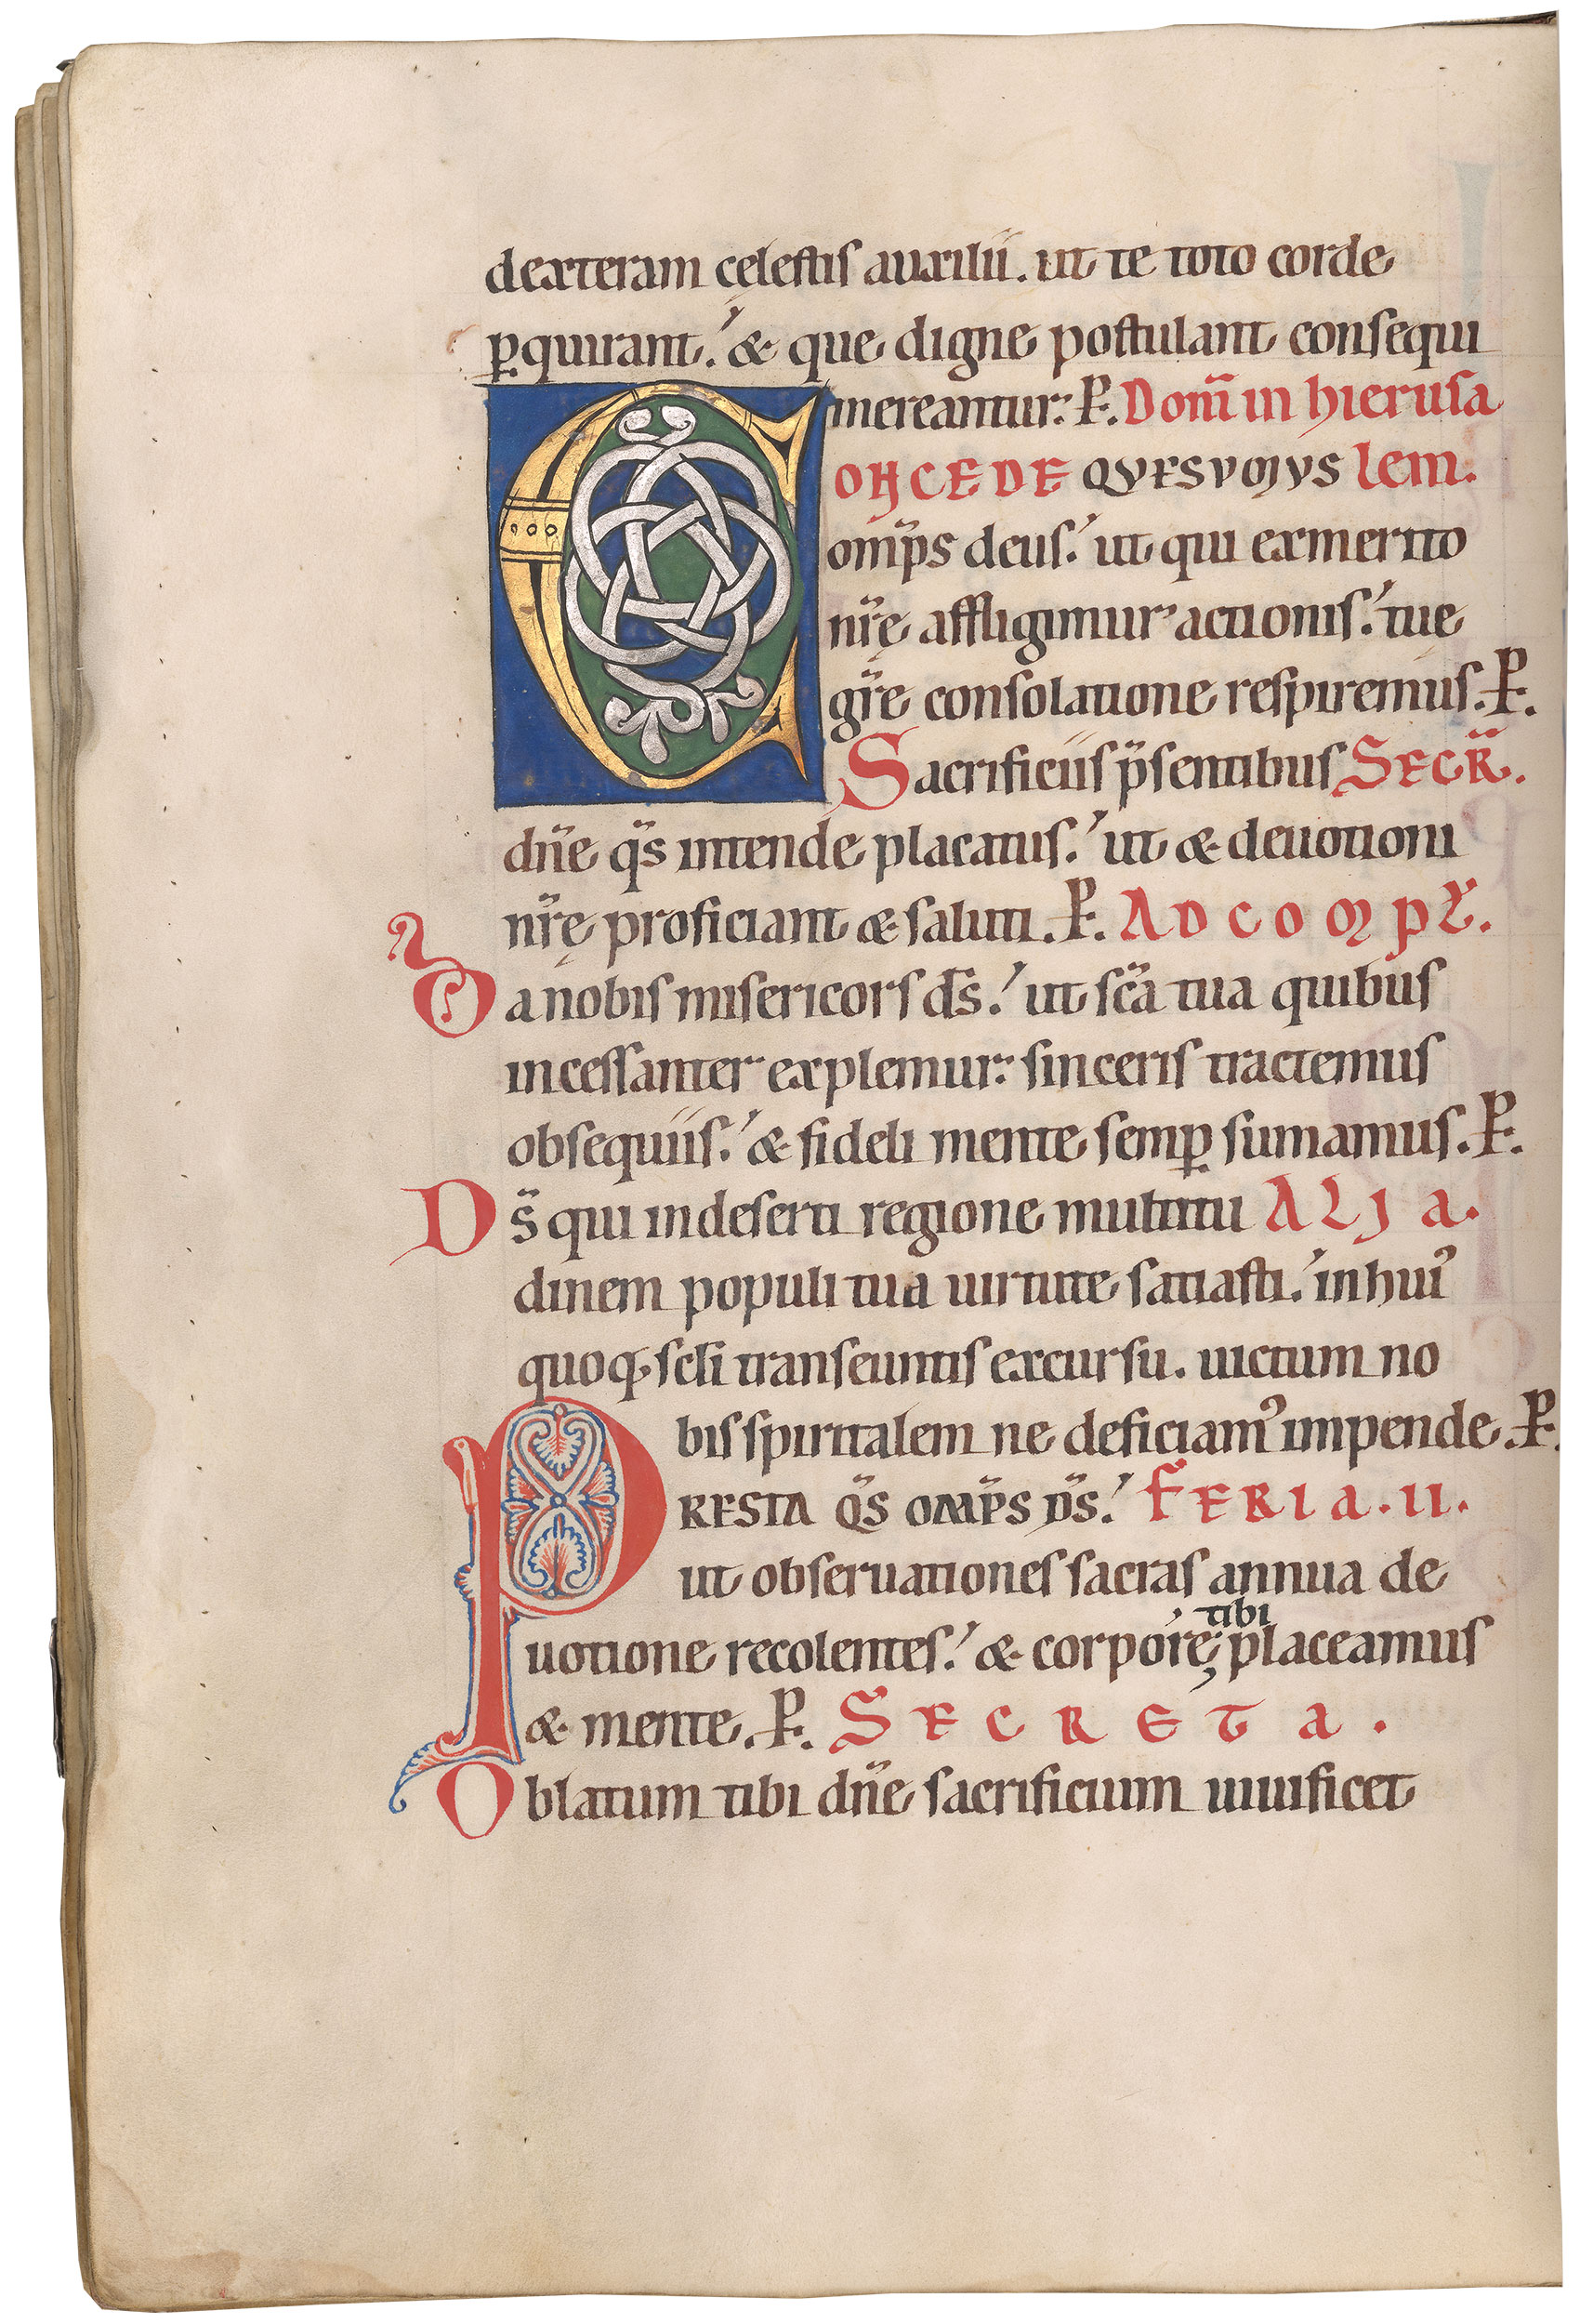 dexteram cęlestis auxilii. ut te toto corde
p̲quirant. & que digne postulant consequi
mereantur. P. Dom̄ in hierusa
CONCEDE QVESVMVS lem.
omp̄s deus. ut qui ex merito
nr̄ę affligimur actionis. tuę
gr̄e consolatione respiremus. P.
Sacrificiis p̄sentibus SECR̄.
dn̄e qs̄ intende placatus. ut & deuotioni
nr̄ę proficiant & saluti. P. AD COMPL̄.
Da nobis misericors ds̄. ut sc̄a tua quibus
incessanter explemur. sinceris tractemus
obsequiis. & fideli mente semp̲ sumamus. P.
Ds̄ qui in deserti regione multitu ALIA.
dinem populi tua uirtute satiasti. in huiꝰ
quoq; scl̄i transeuntis excursu. uictum no
bis spiritalem ne deficiamꝰ impende. P.
PRESTA QS̄ OMP̄S DS̄. FERIA. II.
ut obseruationes sacras annua de
tibi
uotione recolentes. & corpore placeamus
& mente. P. SECRETA.
Oblatum tibi dn̄e sacrificium uiuificet